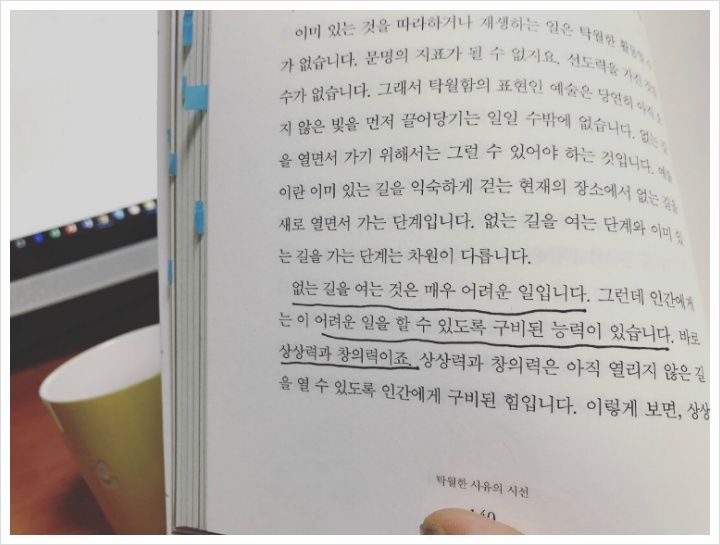 이미 있는 것을 따라하거나 재생하는 일은 탁월한
가 없습니다. 문명의 지표가 될 수 없지요. 선도력을 가진
수가 없습니다. 그래서 탁월함의 표현인 예술은 당연히 아직
지 않은 빛을 먼저 끌어당기는 일일 수밖에 없습니다. 없는 길
을 열면서 가기 위해서는 그럴 수 있어야 하는 것입니다. 예술
이란 이미 있는 길을 익숙하게 걷는 현재의 장소에서 없는 길을
새로 열면서 가는 단계입니다. 없는 길을 여는 단계와 이미 있
는 길을 가는 단계는 차원이 다릅니다.
없는 길을 여는 것은 매우 어려운 일입니다. 그런데 인간에게
는 이 어려운 일을 할 수 있도록 구비된 능력이 있습니다. 바로
상상력과 창의력이죠. 상상력과 창의력은 아직 열리지 않은 길
을 열 수 있도록 인간에게 구비된 힘입니다. 이렇게 보면, 상상
탁월한 사유의 시선